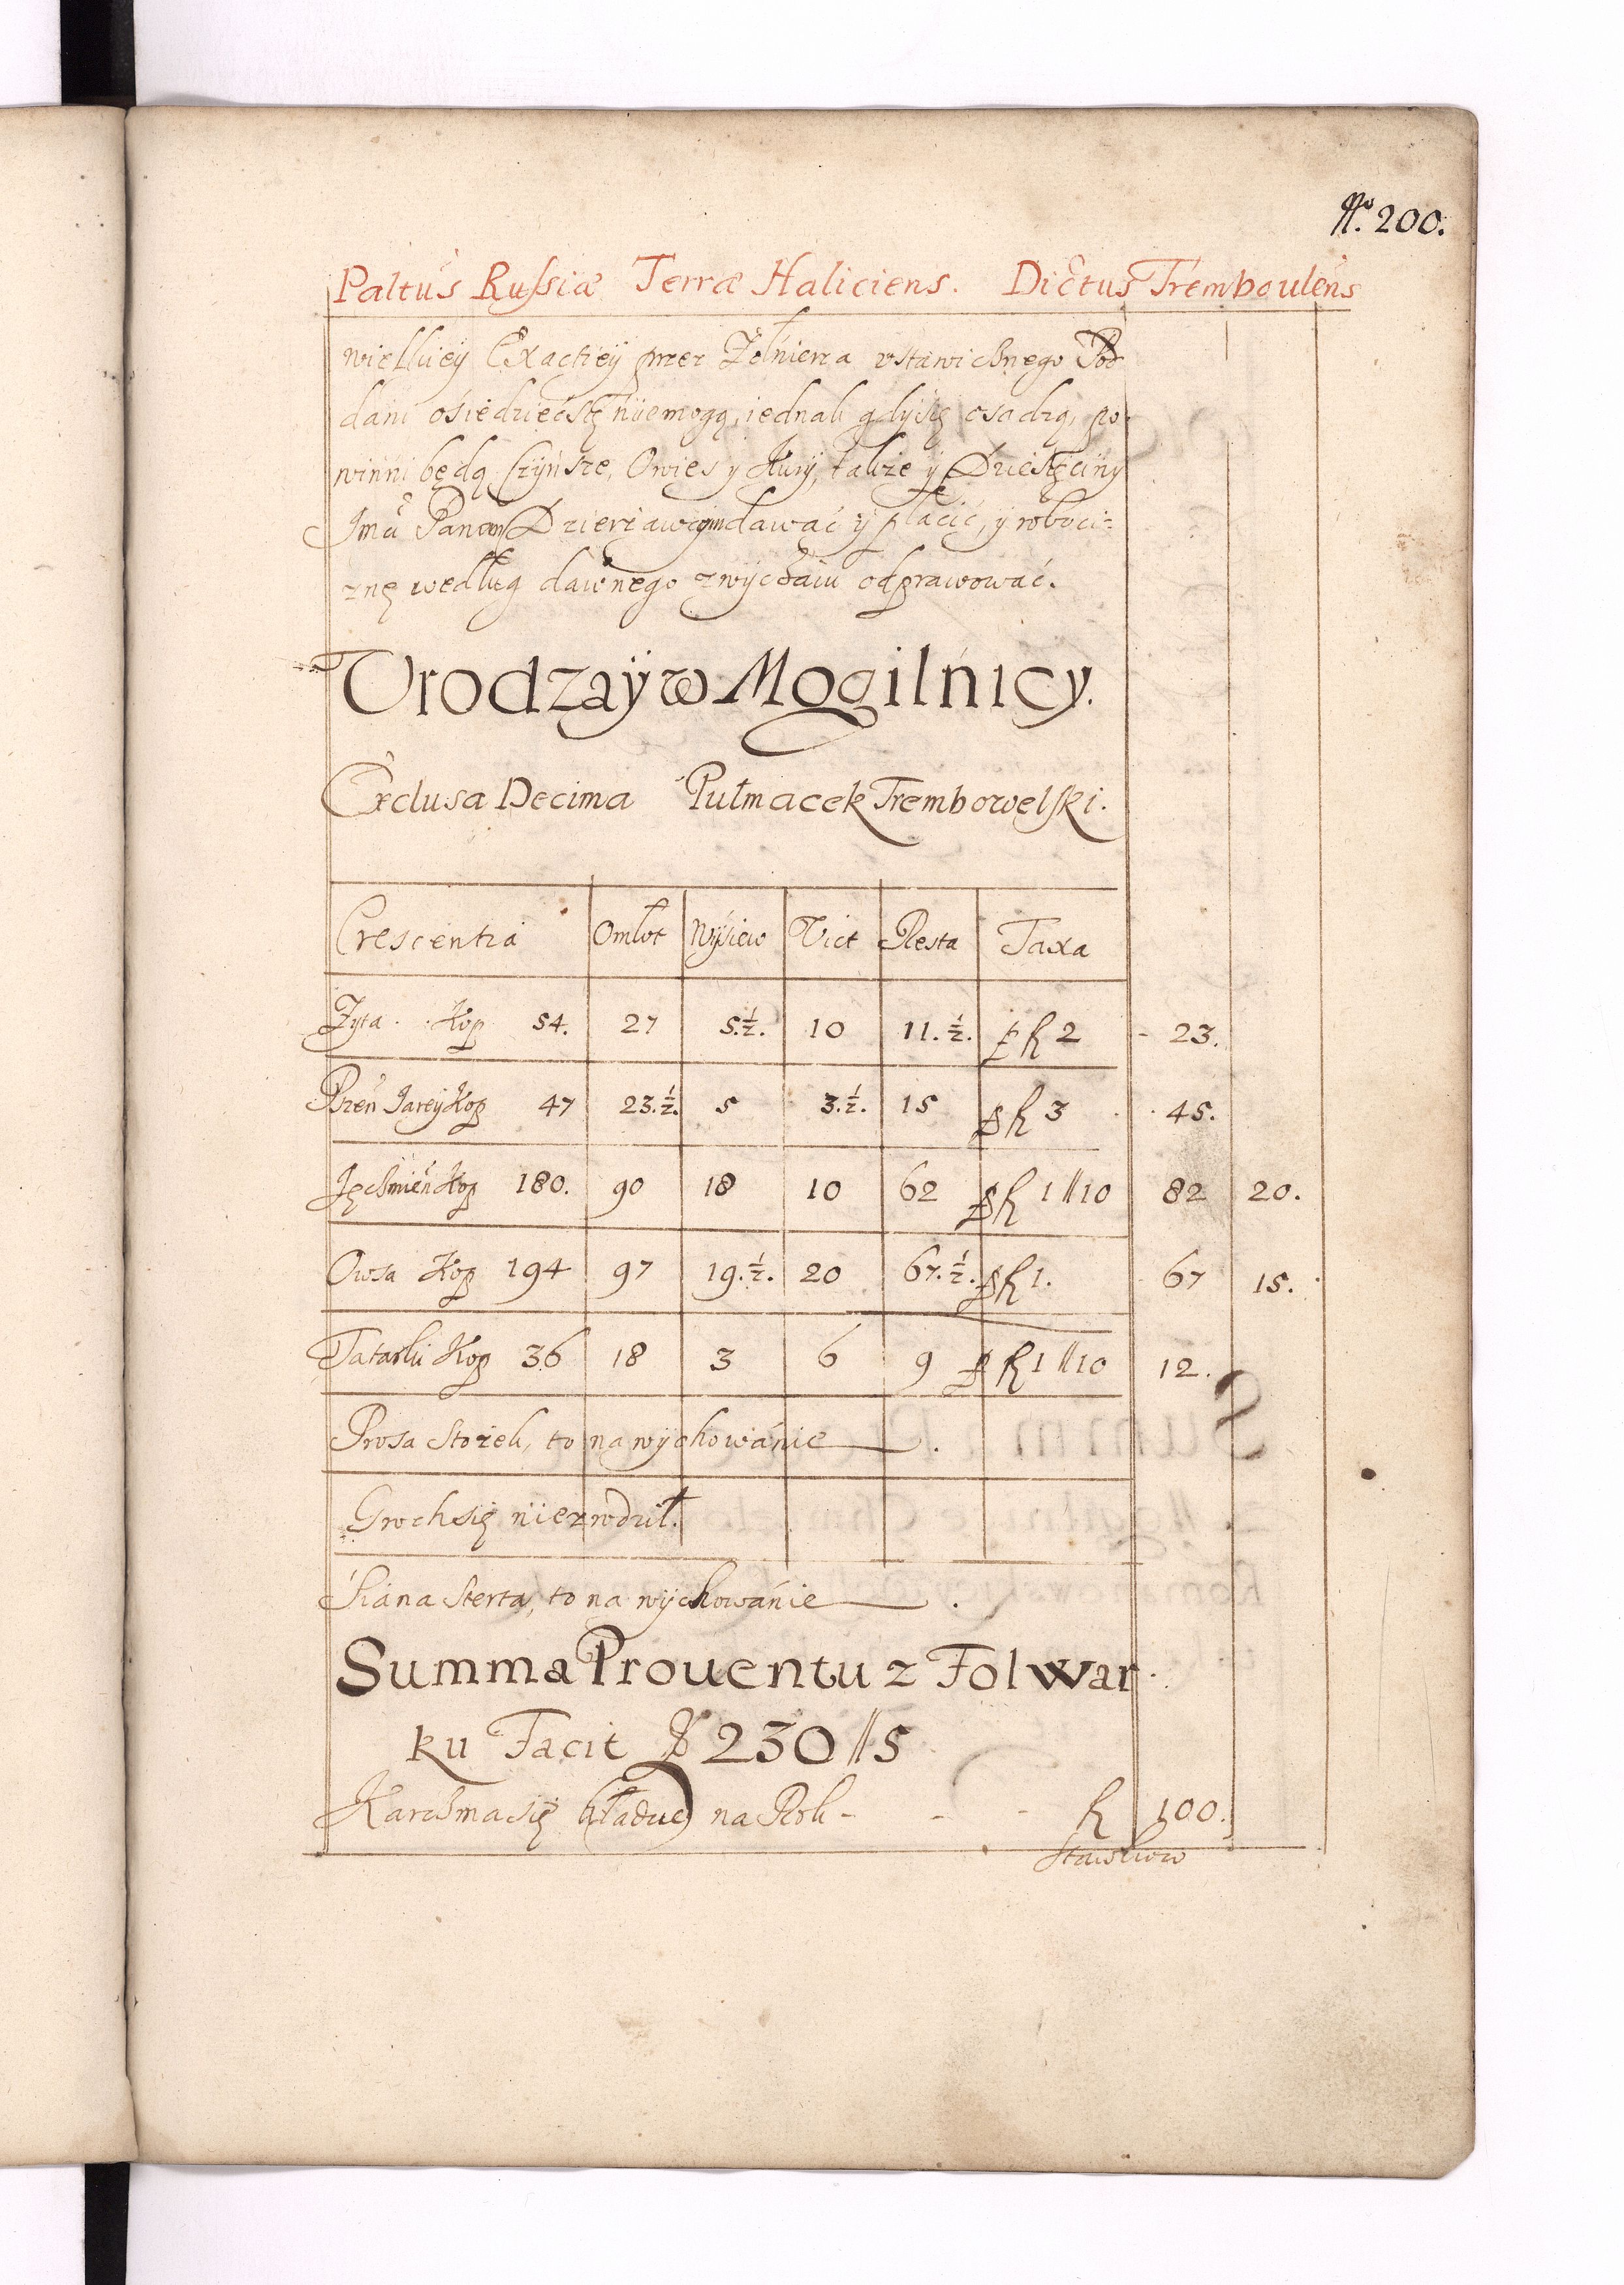 No. 200.
Paltus Russiæ Terræ Haliciens. Dictus Tremboulens
wielkiey Exactiey przez Zołnierza vstawicznego Pod
dani ośiedzieć się niemogą, iednak gdy się osadzą, po
winni będą czynsze, Owies y Kury, także y Dziesięciny
Im̃ Panom Dzierżawcom dawać y płacić, y roboci=
znę według dawnego zwyczaiu odprawować.
Vrodzaÿ w Mogilńicy.
Exclusa Decima Pułmacek Trembowelski.
Crescentia Omłot Wysiew Vict Resta Taxa
Żyta Kop 54. 27 5.½. 10 11.½. pr fl 2 - 23.
Przen Jarey Kop 47 23.½. 5 3.½. 15 pr fl 3 45.
Jęczmień Kop 180. 90 18 10 62 pr fl 1 // 10 82 20.
Owsa Kop 194 97 19.½. 20 67.½. pr fl 1. 67 15.
Tatarki Kop 36 18 3 6 9 pr fl 1 // 10 12.
Prosa Stożek, to na wychowánie .
Groch się niezrodził.
Siana Sterta, to na wychowánie .
Summa Prouentu z Folwar
ku Facit fl 230 // 5
Karczma się kładue na Rok - - - fl 100.
Stawkow